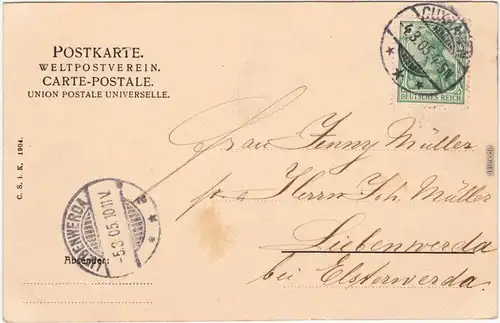 POSTKARTE.
WELTPOSTVEREIN.
CARTE-POSTALE.
UNION POSTALE UNIVERSELLE.
CUXHAVEN
4.3.05.
DEUTSCHES REICH
C. S. i. K. 1904.
Frau Jenny Müller
p. a Herrn Joh. Müller
Liebenwerda
bei Elsterwerda.
LIEBENWERDA
-5.3.05.10-11V.
Absender: